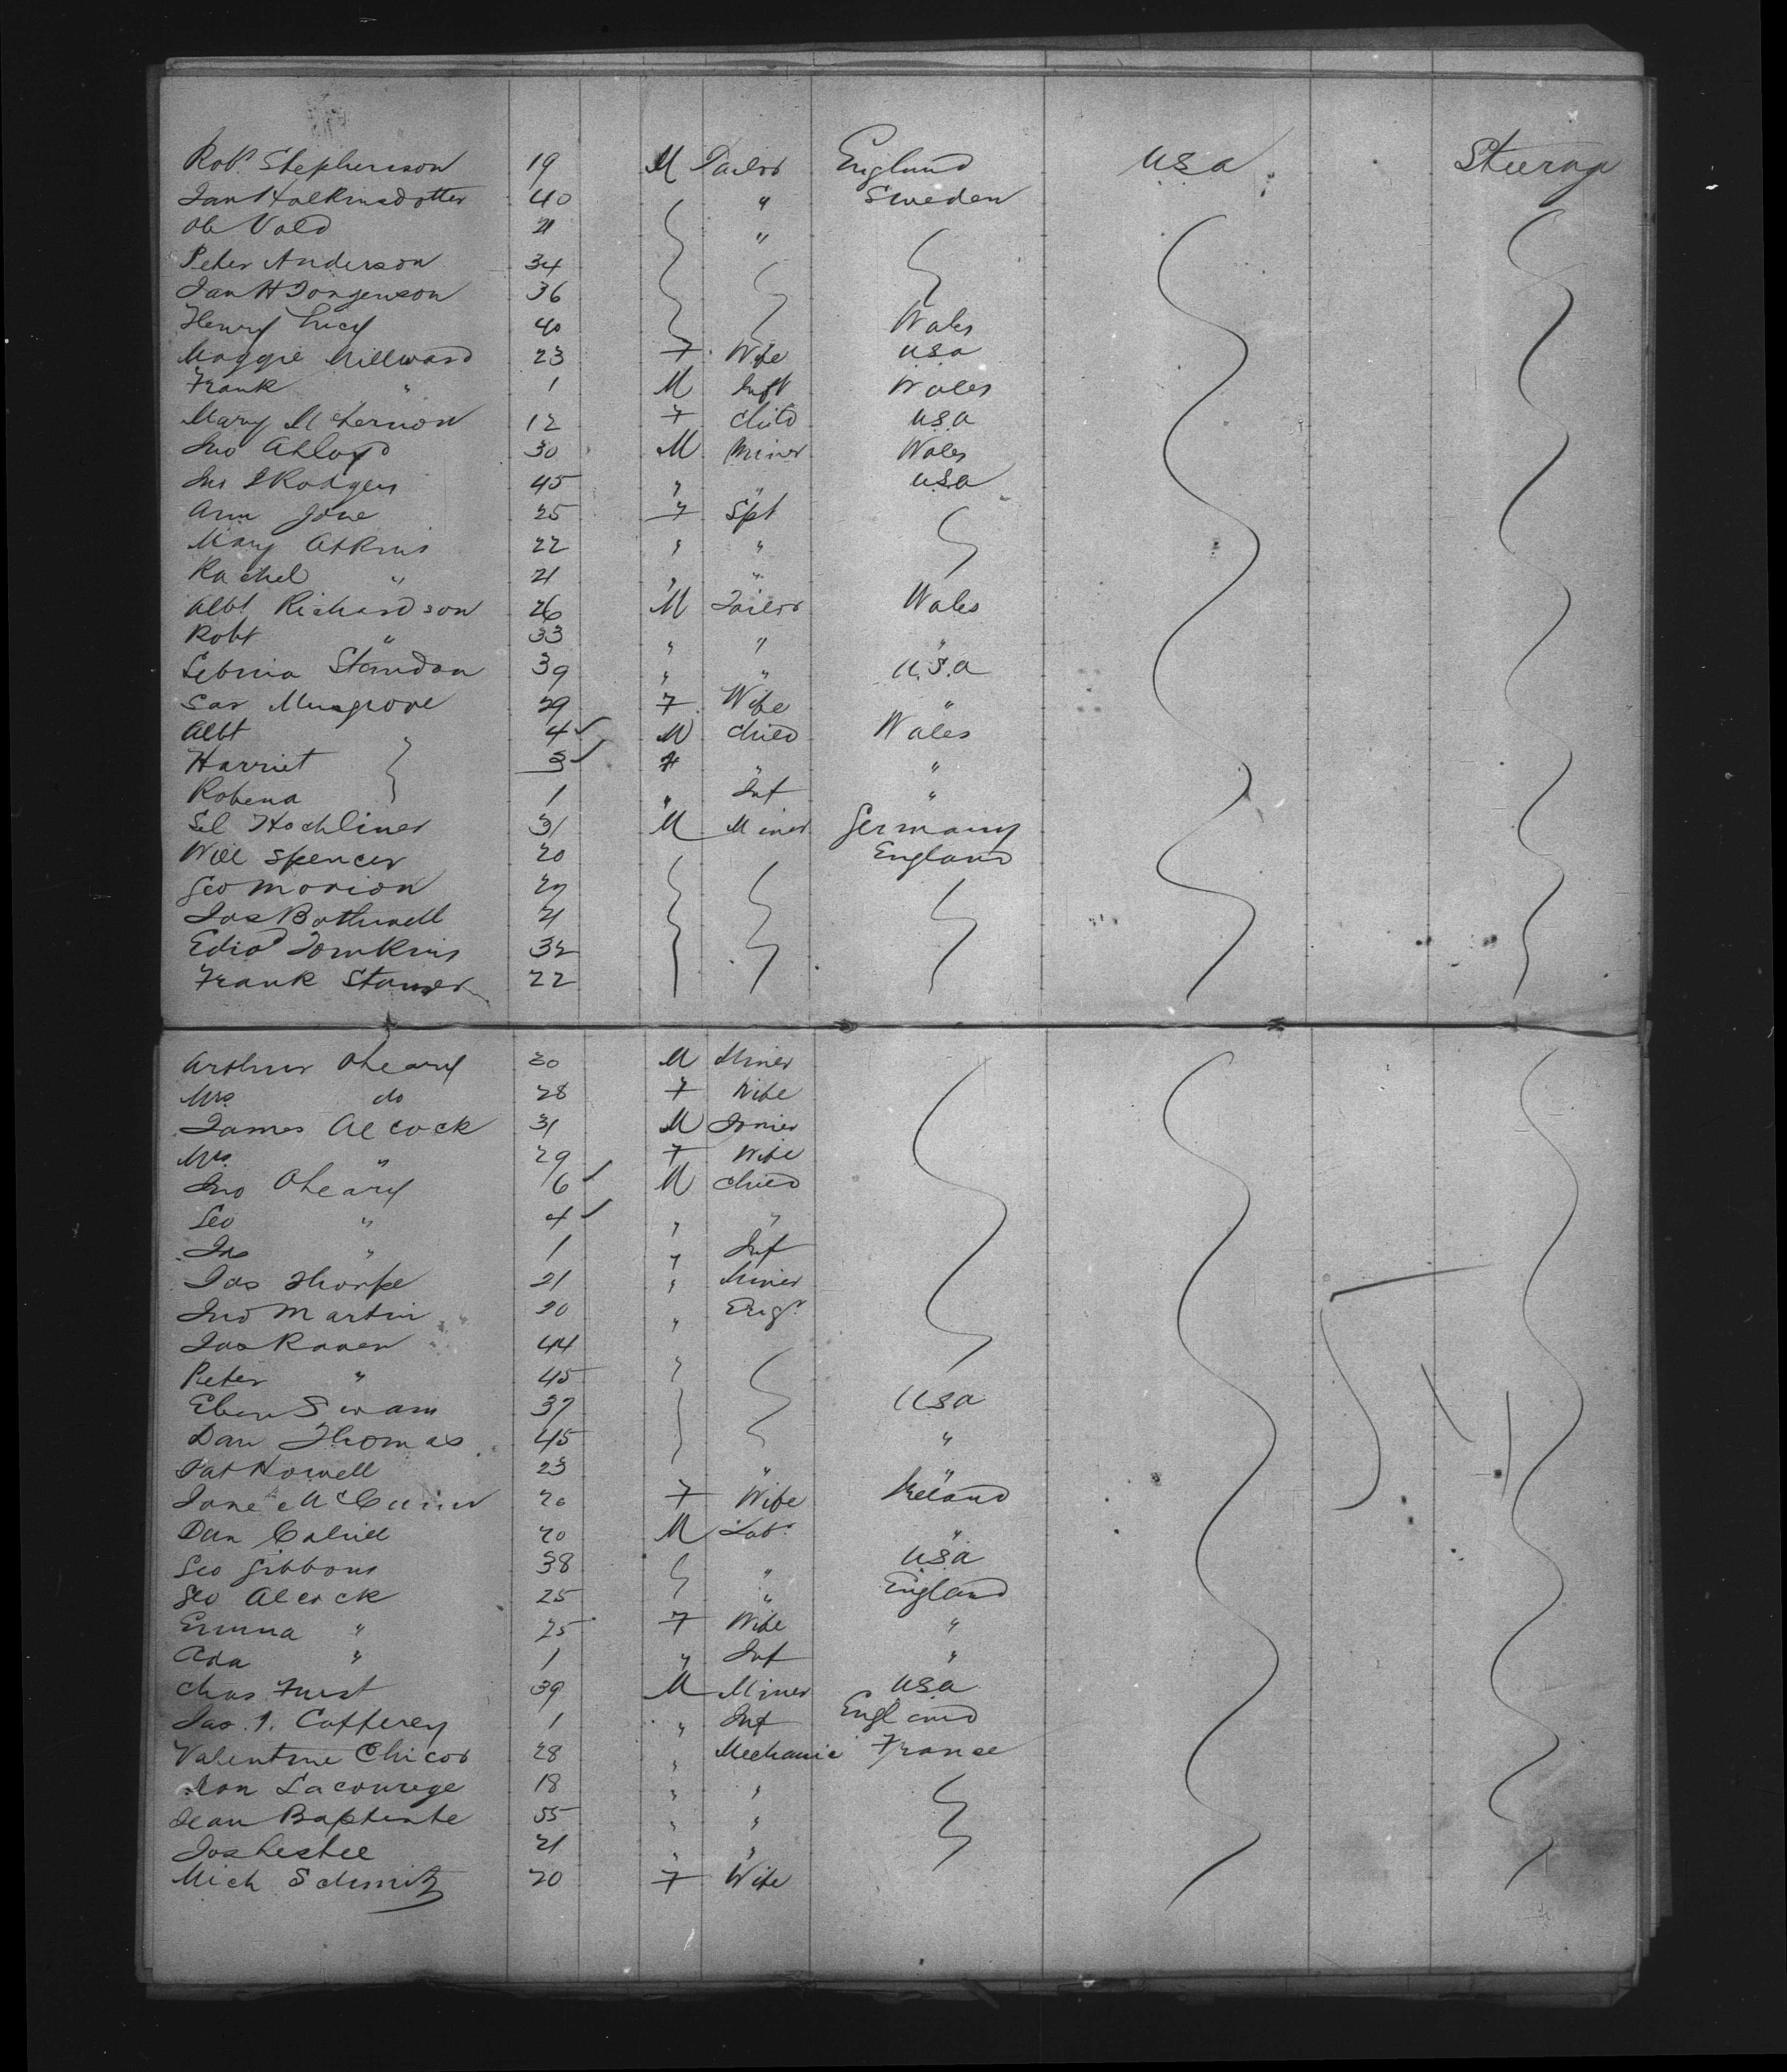 Robt. Stephenson 19 M Tailor England USA Steerage
Jan Halkinsdotter 40 " Sweden
Ole Vold 21 "
Peter Anderson 34
Jan H Jorgenson 36
Henry Lucy 40 Wales
Maggie Millward 23 F Wife USA
Frank " 1 M Inft Wales
Mary McKernon 12 F Child USA
Jno Ahloyd 30 M Miner Wales
Jno Rodgers 45 " " USA
Ann Jane 25 F Spt
Mary Atkins 22 " "
Rachel " 21 " "
Albt Richardson 26 M Tailor Wales
Robt " 33 " " "
Standon 39 " " U.S.A
Sar Musgrove 29 F Wife "
Albt 4 M Child Wales
Harriet 3 F " "
Robena 1 " Inf "
Sel Hochliner 31 M Miner Germany
Will Spencer 20 England
Geo Morion 27
Jas Bothwell 21
Edwd Tomkins 32
Frank Stamer 22
Arthur Oheary 30 M Miner
Mrs do 28 F Wife
James Alcock 31 M Joiner
Mrs " 29 F Wife
Jno Oheary 6 M Child
Geo " 4 " "
Jas " 1 " Inf
Jas Thorpe 21 " Miner
Jno Martin 20 " Engr
Jas Raven 44 "
Peter " 45
Eben Swam 37 USA
Dan Thomas 45 "
Pat Howell 23 " "
Jane 26 F Wife Ireland
Dan Cahill 20 M Labr "
Geo Gibbons 38 " USA
Geo Alcock 25 " England
Emma " 25 F Wife "
Ada " 1 " Inf "
Chas Furst 39 M Miner USA
Jas. 1. Cafferey 1 " Inf England
Valentine Chicor 28 " Mechanic France
Leon Lacourege 18 " "
Jean Baptiste 55 " "
Jos Lestee 21 " "
Mich Schmitz 20 F Wife